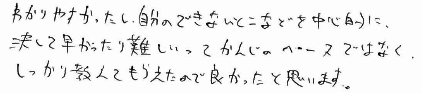 わかりやすかったし、自分のできないとこなどを中心的に、
決して早かったり難しいってかんじのペースではなく、
しっかり教えてもらえたので良かったと思います。